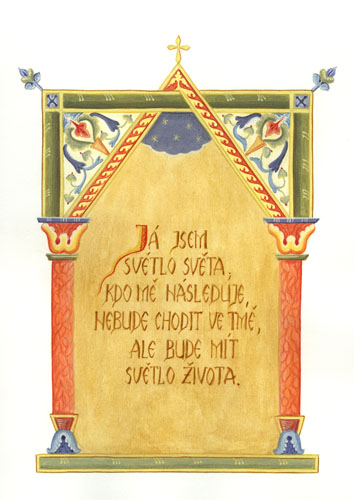 JÁ JSEM
SVĚTLO SVĚTA,
KDO MĚ NÁSLEDUJE,
NEBUDE CHODIT VE TMĚ,
ALE BUDE MÍT
SVĚTLO ŽIVOTA.